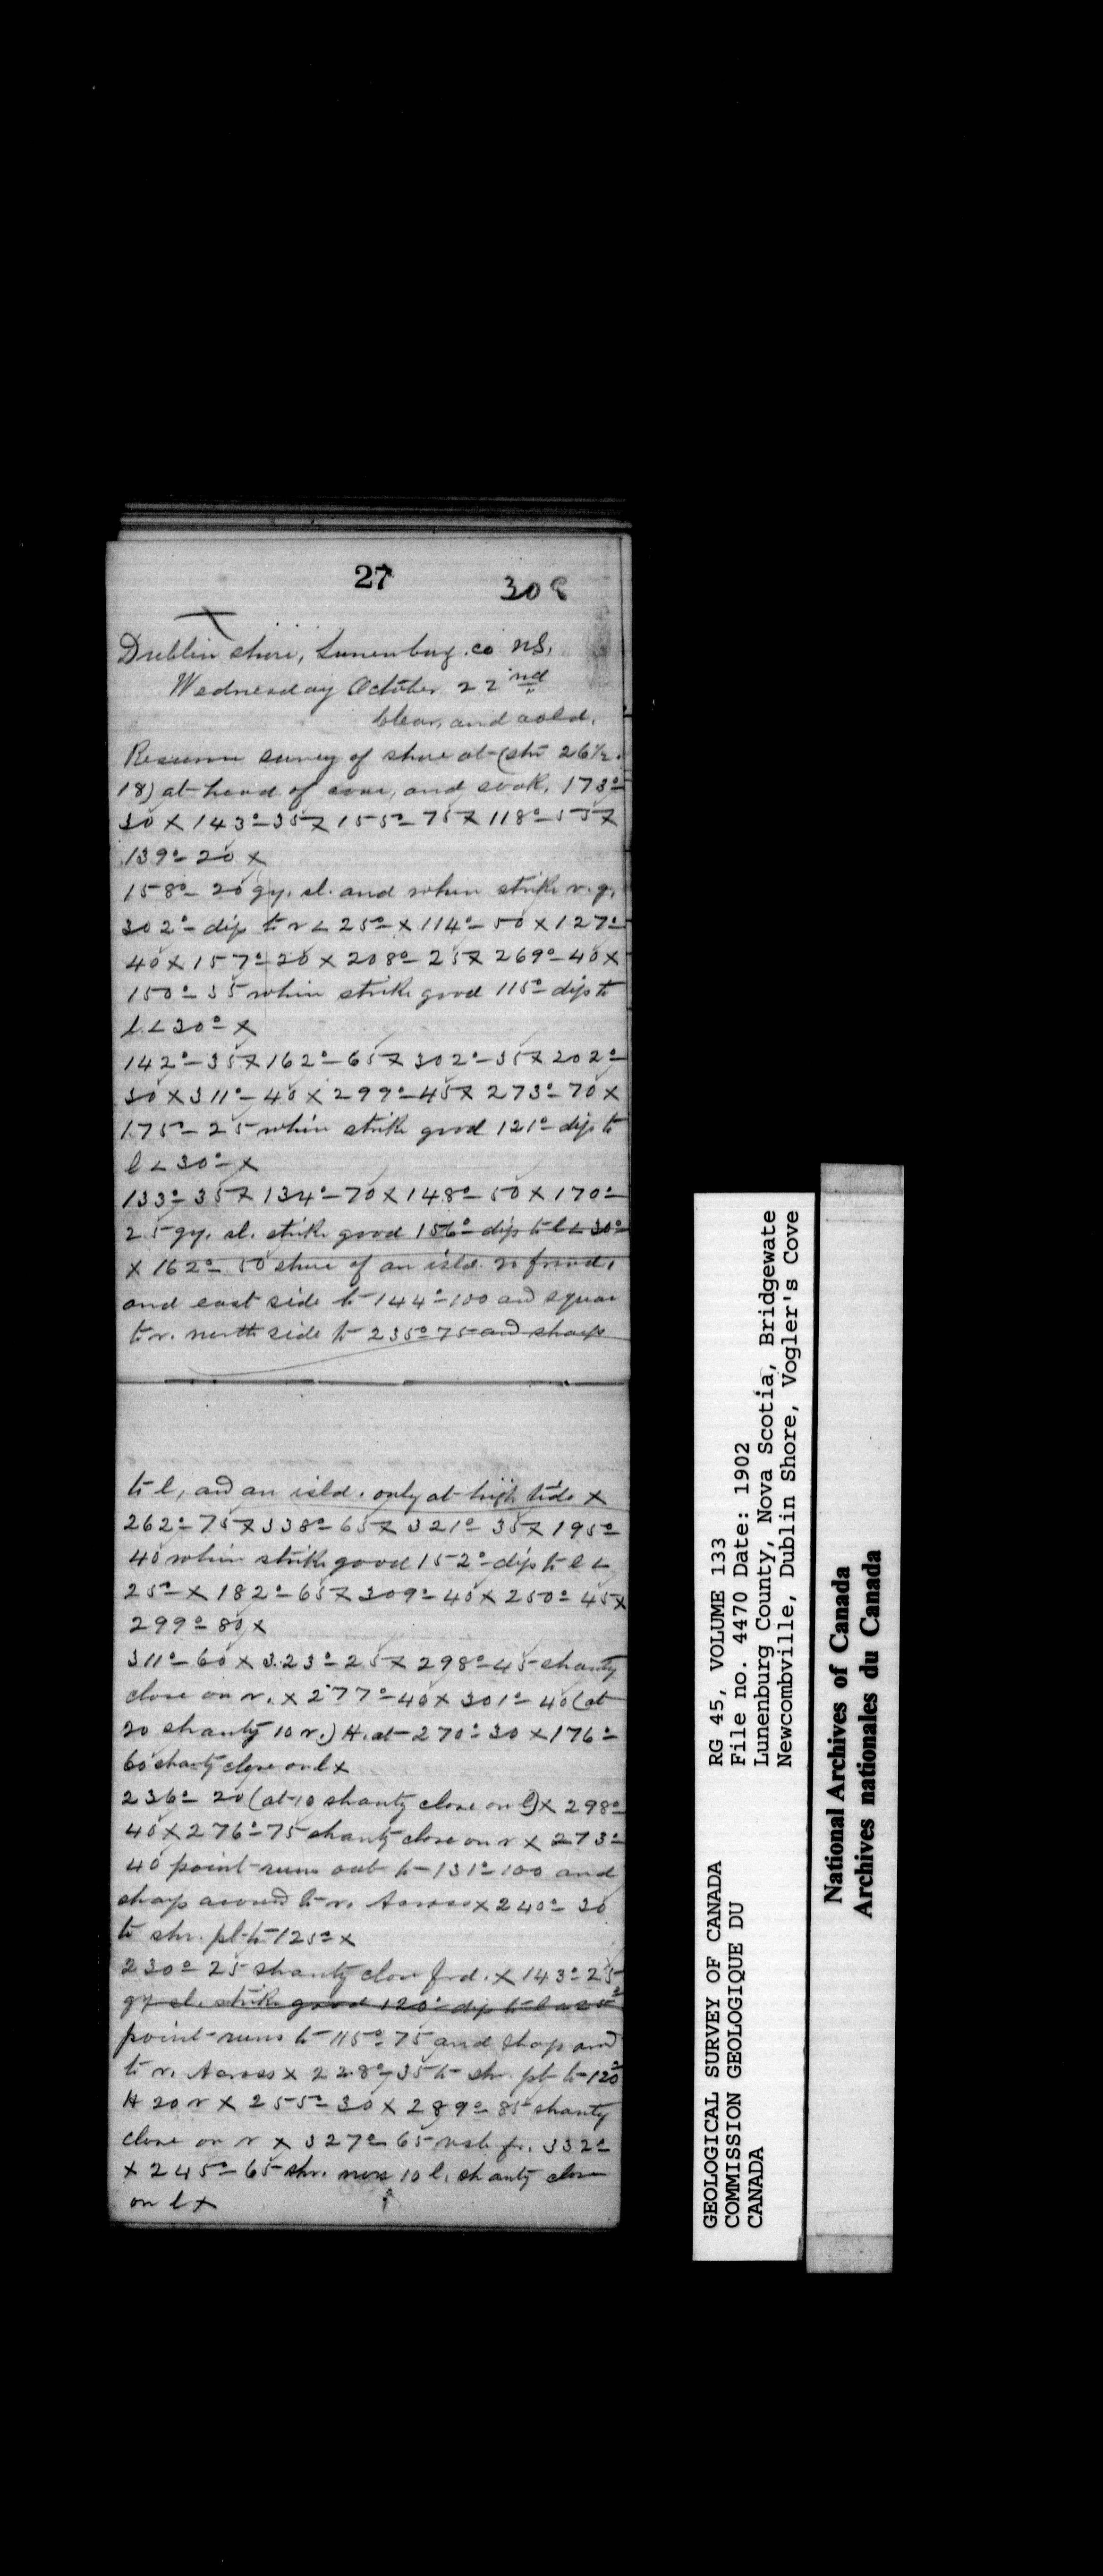 27
308
Dublin shore, Lunenburg. co N.S.
Wednesday October 22nd
Clear, and cold.
Resume survey of shore at (stn 26½.
18) at head of cove, and cook. 173°-
30 X 143°-35 X 155°-75 X 118°-55 X
139°-20 X
158°-20 gy. sl. and whin strike v. g.
302°- dip to r < 25°- X 114°-50 X 127°-
40 X 157°-20 X 208°-25 X 269°-40 X
150°-35 whin strike good 115°- dip to
l. < 30°- X
142°-35 X 162°-65 X 302°-35 X 202°-
30 X 311°-40 X 299°-45 X 273°-70 X
175°-25 whin strike good 121°- dip to
l < 30°- X
133°-35 X 134°-70 X 148°-50 X 170°-
25 gy. sl. strike good 156°- dip to l < 30°-
X 162°-50 shore of an isld. 20 frwd.
and east side to 144°-100 and square
to r. north side to 235°-75 and sharp
to l, and an isld. only at high tide X
262°-75 X 338°-65 X 321°-35 X 195°-
40 whin strike good 152°- dip to l <
25°- X 182°-65 X 309°-40 X 250°-45 X
299°-80 X
311°-60 X 323°-25 X 298°-45 shanty
close on r. X 277°-40 X 301°-40 (at
20 shanty 10 r.) H. at 270°-30 X 176°-
60 shanty close on l X
236°-20 (at 10 shanty close on l) X 298°-
40 X 276°-75 shanty close on r X 273°-
40 point runs out to 131°-100 and
sharp around to r. Across X 240°-30
to shr. pt to 125°- X
230°-25 shanty close frd. X 143°-25
gy sl. strike good 120°- dip to l < 25°-
point runs to 115°-75 and sharp and
to r. Across X 228°-35 to shr. pt to 120°
H 20 r X 255°-30 X 289°-85 shanty
close on r X 327°-65 fr. 332°-
X 245°-65 shr. now 10 l. shanty close
on l X
GEOLOGICAL SURVEY OF CANADA
COMMISSION GEOLOGIQUE DU
CANADA
RG 45, VOLUME 133
File no. 4470 Date: 1902
Lunenburg County, Nova Scotia, Bridgewate
Newcombville, Dublin Shore, Vogler's Cove
National Archives of Canada
Archives nationales du Canada